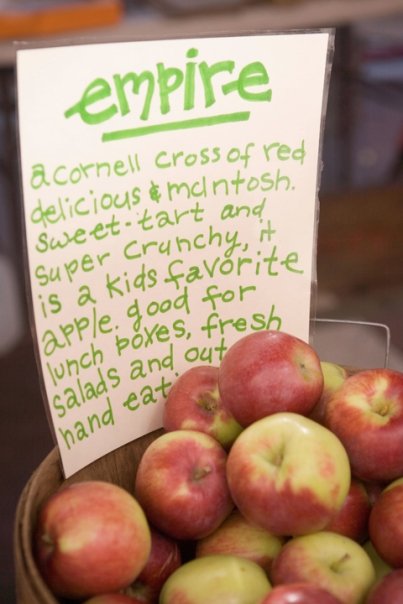 empire
a cornell cross of red
delicious & mcIntosh.
sweet-tart and
super crunchy, it
is a kids favorite
apple. good for
lunch boxes, fresh
salads and out
hand eat